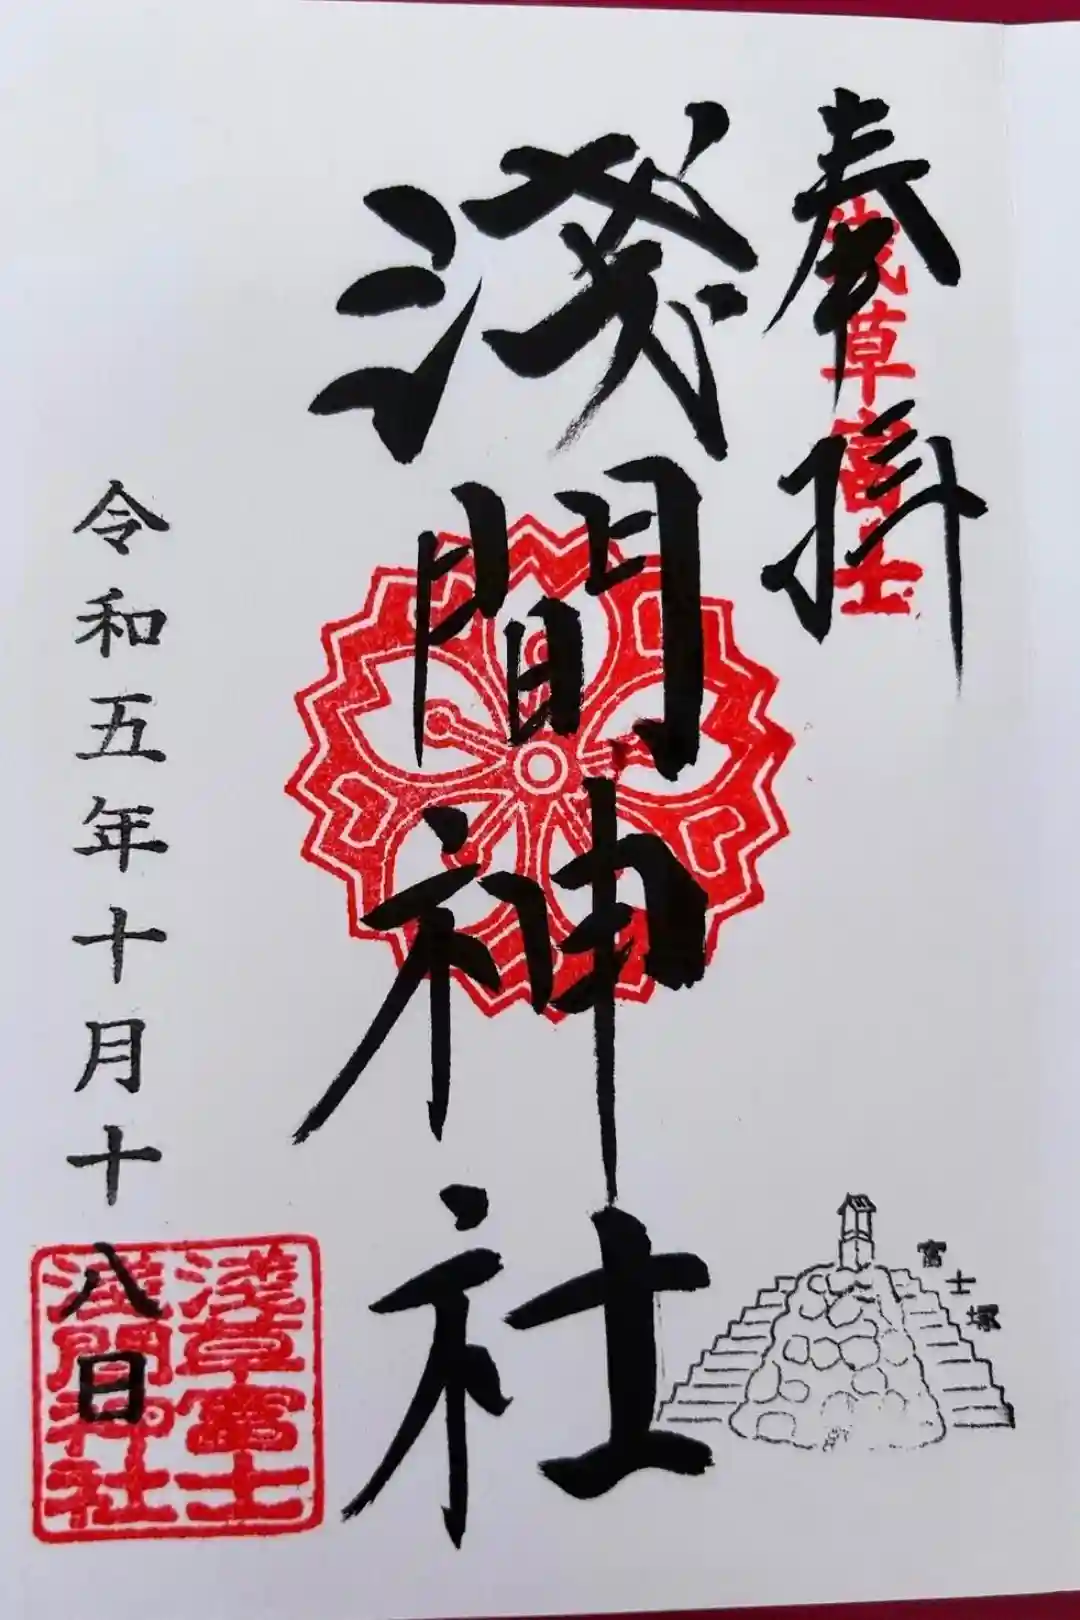 奉拝
浅草富士
淺間神社
令和五年十月十八日
淺草富士
淺間神社
富士塚